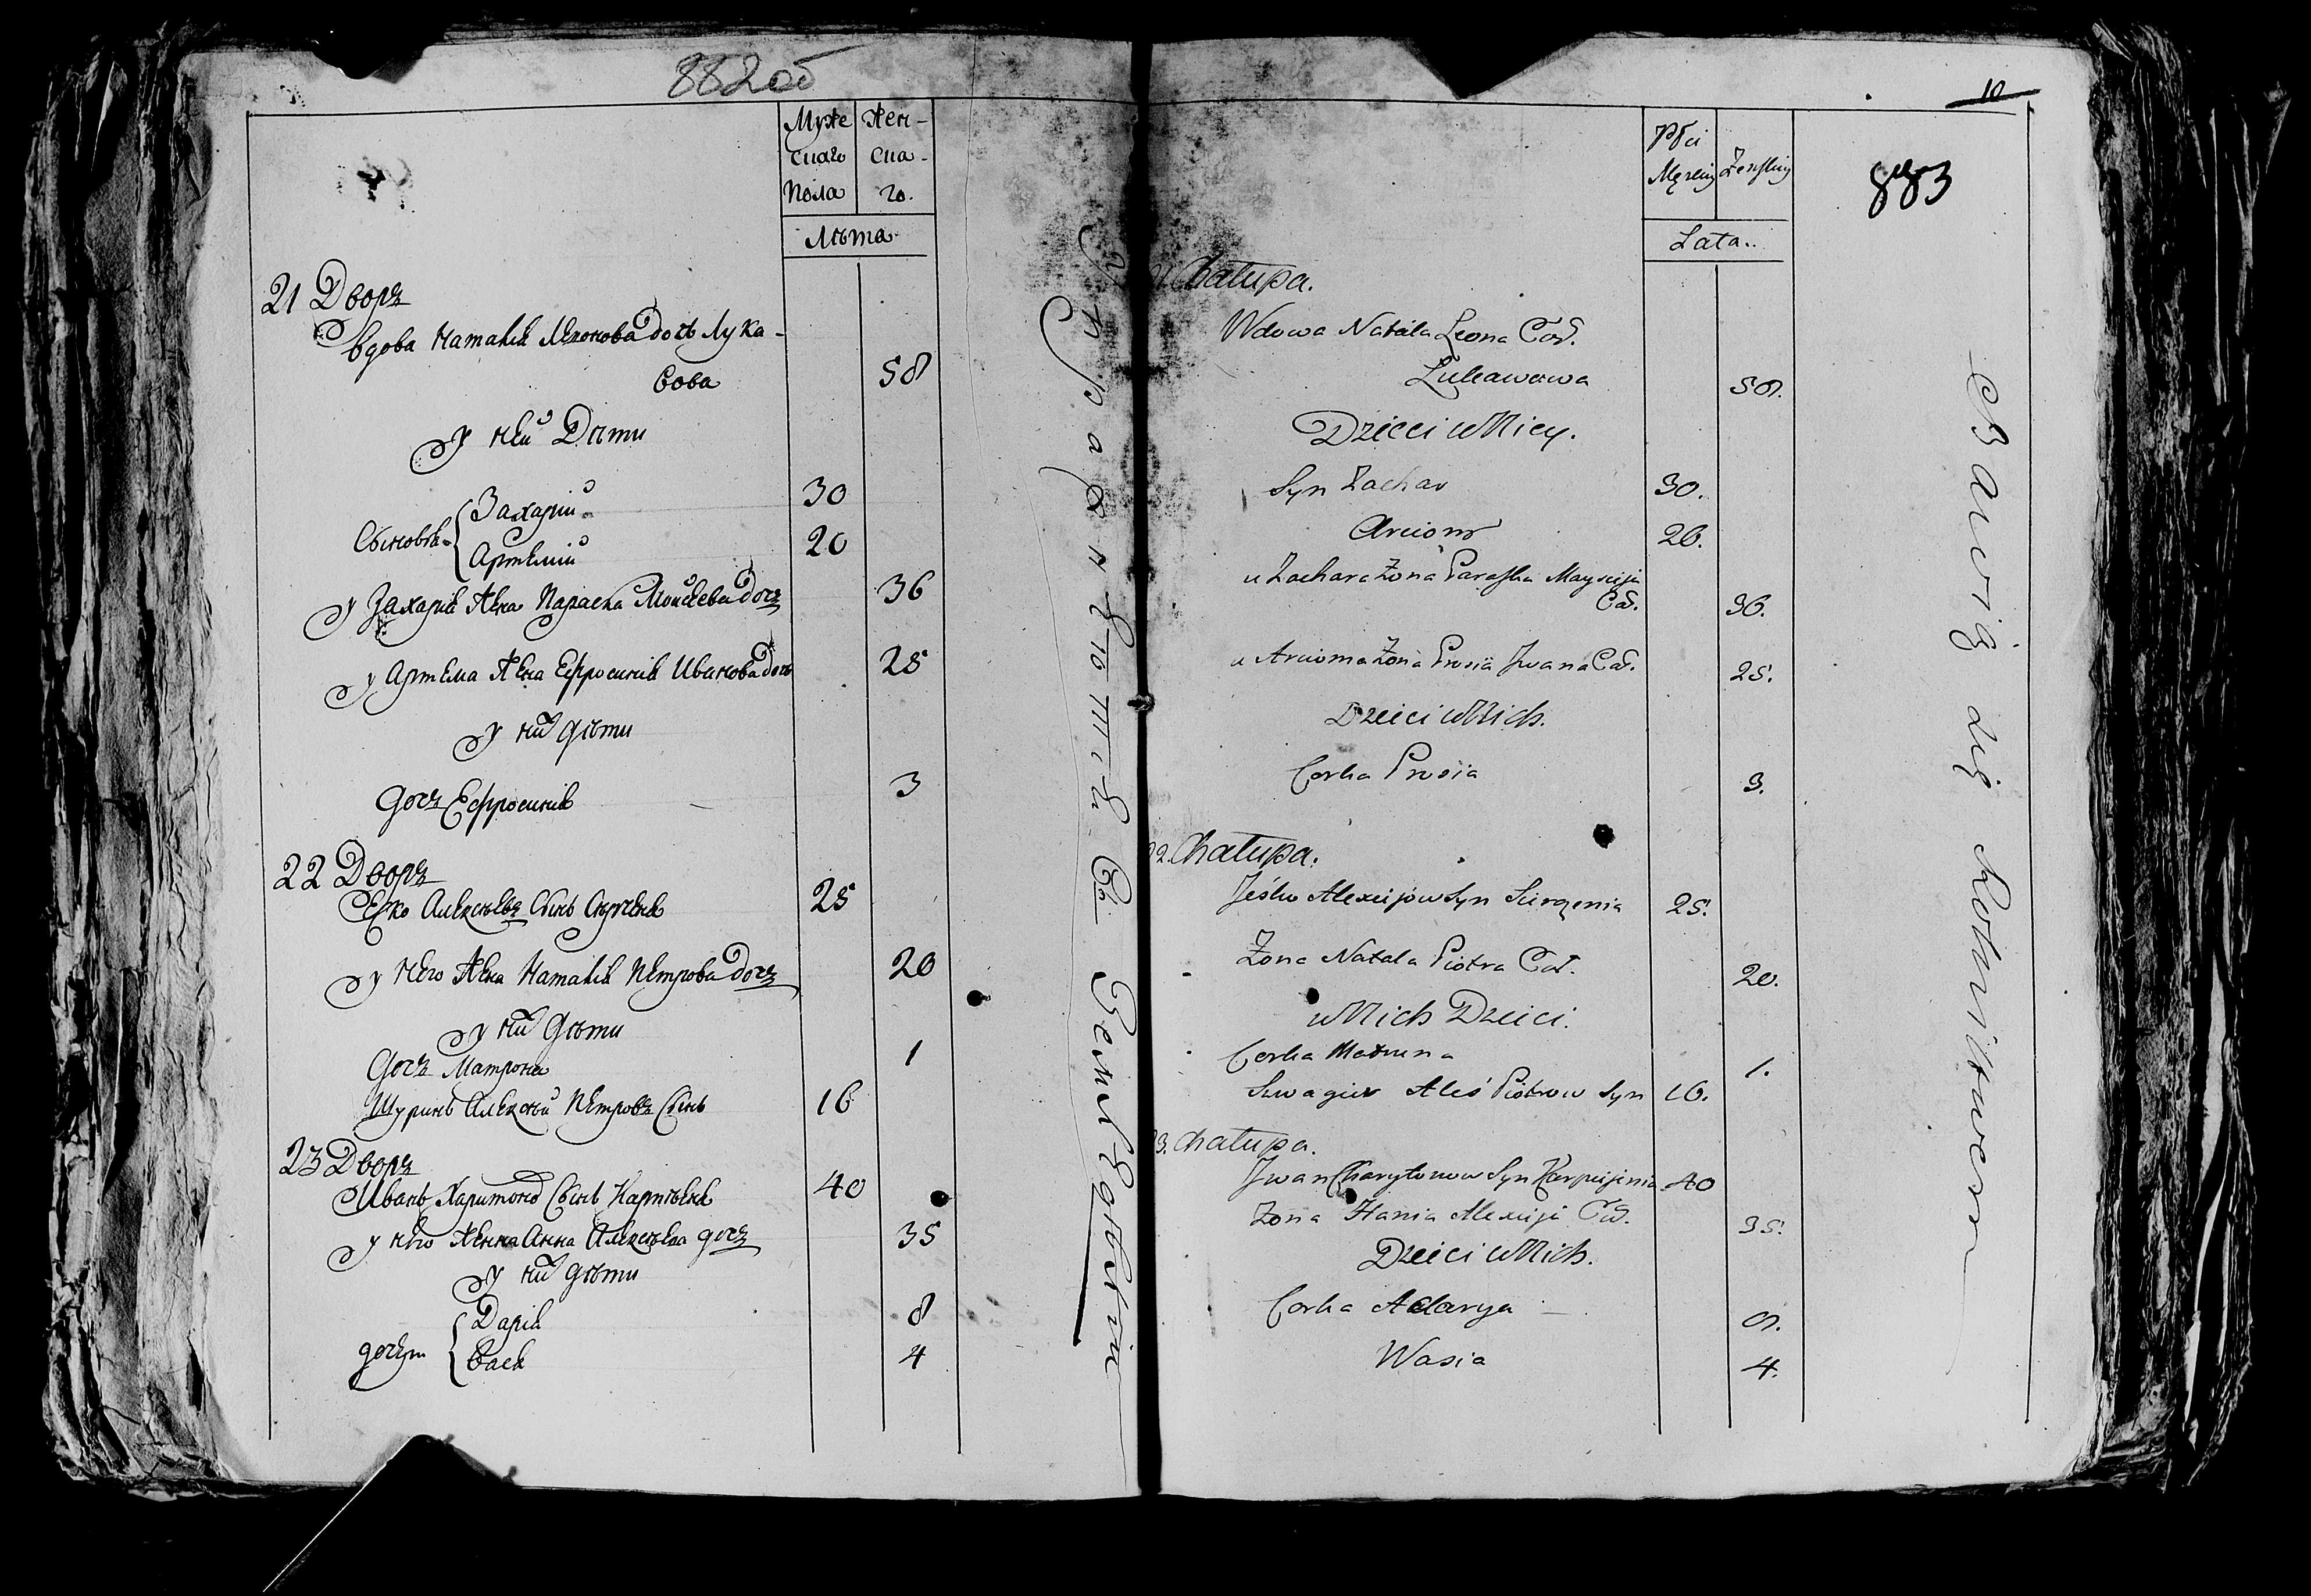 882 об
Муже Жен-
скаго ска-
Пола го.
Лѣта
21 Дворъ
Вдова Наталія Леонова дочь Лука-
сова 58
У ней Дѣти
Сыновья Захарій 30
Артемій 20
У Захарія Жена Параска Моисеева дочъ 36
У Артема Жена Ефросинія Иванова дочь 25
У нихъ дѣти
дочъ Ефросинія 3
22 Дворъ
Еско Алексѣевъ Сынъ 25
У него Жена Наталія Петрова дочъ 20
У нихъ дѣти
дочъ Матрона 1
Шуринъ Алексѣй Петровъ Сынъ 16
23 Дворъ
Иванъ Харитоновъ Сынъ Карпѣеня 40
У него Женна Анна Алексѣева дочъ 35
У нихъ дѣти
дочери Дарія 8
Вася 4
10
883
Płci
Męzkiej Żeńskiej
Lata..
21. Chałupa.
Wdowa Natala Leona Cór.
Lukasowa 58.
Dzieci u Niey.
Syn Zachar 30.
Arciom 20.
u Zachara Żona Paraska Mayseja
Cór. 36.
u Arcioma Żona Prosia Jwana Cór. 25.
Dzieci u Nich.
Corka Prosia 3.
22. Chałupa.
Jeśko Alexiejow Syn 25.
Żona Natala Piotra Cór. 20.
u Nich Dzieci.
Corka Matruna 1.
Szwagier Aleś Piotrow Syn 16.
23. Chałupa.
Jwan Charytonow Syn Karpiejenia 40
Żona Hania Alexieja Cór. 35.
Dzieci u Nich.
Corka Adarya 8.
Wasia 4.